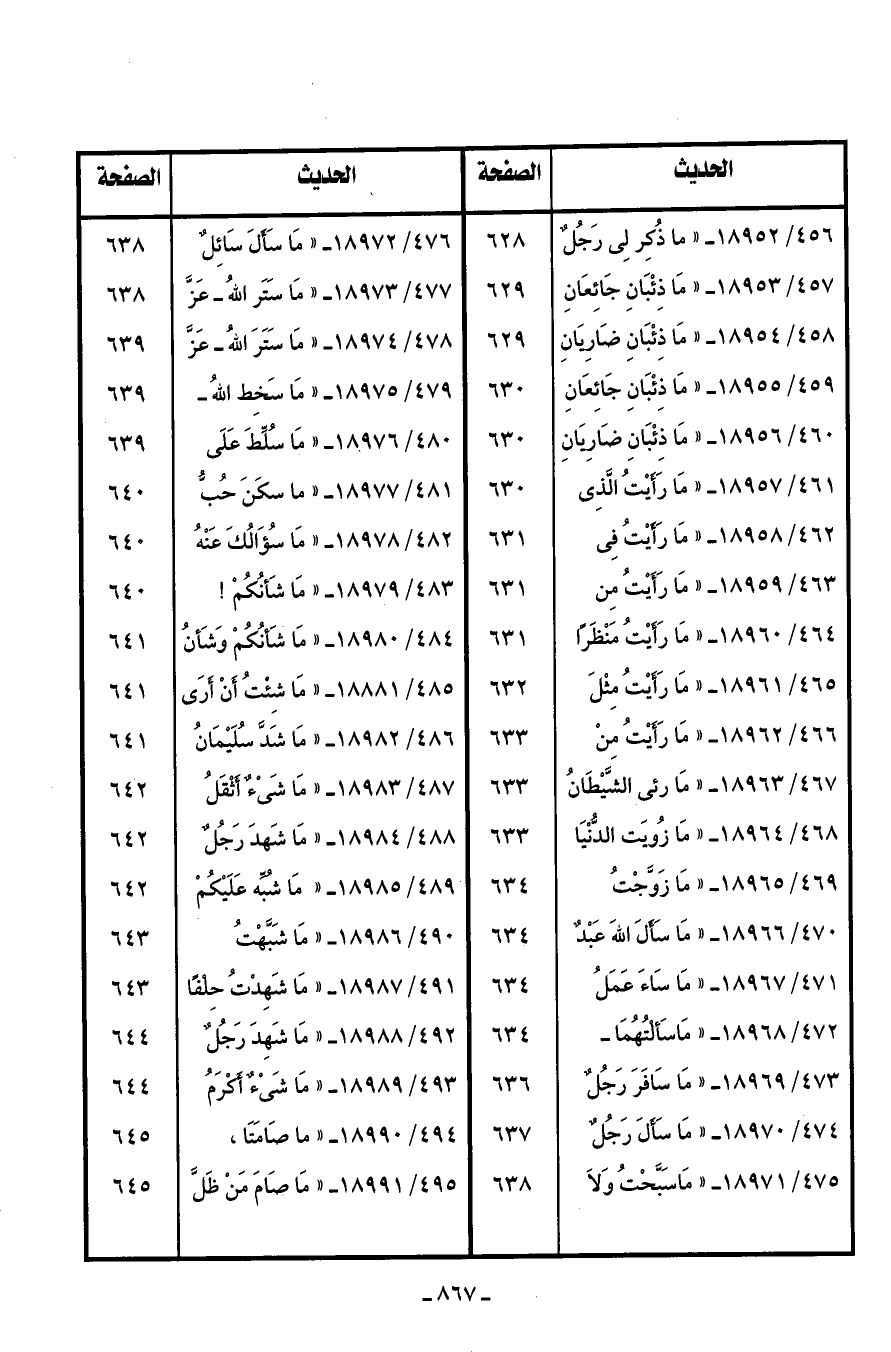 الحديث الصفحة الحديث الصفحة
٤٥٦/ ١٨٩٥٢ـ « ما ذُكِر لِى رَجُلٌ ٦٢٨ ٤٧٦/ ١٨٩٧٢ـ « مَا سَأَلَ سَائِلٌ ٦٣٨
٤٥٧/ ١٨٩٥٣ـ « مَا ذِئْبَانِ جَائِعَانِ ٦٢٩ ٤٧٧/ ١٨٩٧٣ـ « مَا سَتَر اللهُ ـ عَزَّ ٦٣٨
٤٥٨/ ١٨٩٥٤ـ « مَا ذِئْبَانِ ضَارِيَان ٦٢٩ ٤٧٨/ ١٨٩٧٤ـ « مَا سَتَرَ اللهُ ـ عَزَّ ٦٣٩
٤٥٩/ ١٨٩٥٥ـ « مَا ذِئْبَانِ جَائِعَانِ ٦٣٠ ٤٧٩/ ١٨٩٧٥ـ « مَا سَخِط اللهُ ـ ٦٣٩
٤٦٠/ ١٨٩٥٦ـ « مَا ذِئْبَانِ ضَاريَانِ ٦٣٠ ٤٨٠/ ١٨٩٧٦ـ « مَا سُلِّطَ عَلَى ٦٣٩
٤٦١/ ١٨٩٥٧ـ « مَا رَأَيْتُ الَّذِى ٦٣٠ ٤٨١/ ١٨٩٧٧ـ « ما سكَنَ حُبُّ ٦٤٠
٤٦٢/ ١٨٩٥٨ـ « مَا رَأَيْتُ فِى ٦٣١ ٤٨٢/ ١٨٩٧٨ـ « مَا سُؤَالُكَ عَنْهُ ٦٤٠
٤٦٣/ ١٨٩٥٩ـ « مَا رَأَيْتُ مِن ٦٣١ ٤٨٣/ ١٨٩٧٩ـ « مَا شأنُكُمْ ! ٦٤٠
٤٦٤/ ١٨٩٦٠ـ « مَا رَأَيْتُ مَنْظَرًا ٦٣١ ٤٨٤/ ١٨٩٨٠ـ « مَا شَأنُكُمْ وَشَأنُ ٦٤١
٤٦٥/ ١٨٩٦١ـ « مَا رَأَيْتُ مِثْلَ ٦٣٢ ٤٨٥/ ١٨٨٨١ـ « مَا شِئْتُ أَنْ أَرَى ٦٤١
٤٦٦/ ١٨٩٦٢ـ « مَا رَأَيْتُ مِنْ ٦٣٣ ٤٨٦/ ١٨٩٨٢ـ « مَا شَدَّ سُلَيْمَانُ ٦٤١
٤٦٧/ ١٨٩٦٣ـ « مَا رئى الشَّيْطَانُ ٦٣٣ ٤٨٧/ ١٨٩٨٣ـ « مَا شَىْءٌ أَثْقَلُ ٦٤٢
٤٦٨/ ١٨٩٦٤ـ « مَا زُوِيَت الدُّنْيَا ٦٣٣ ٤٨٨/ ١٨٩٨٤ـ « مَا شَهِدَ رَجُلٌ ٦٤٢
٤٦٩/ ١٨٩٦٥ـ « مَا زَوَّجْتُ ٦٣٤ ٤٨٩/ ١٨٩٨٥ـ « مَا شُبِّه عَلَيْكُمْ ٦٤٢
٤٧٠/ ١٨٩٦٦ـ « مَا سَأَلَ اللهَ عَبْدٌ ٦٣٤ ٤٩٠/ ١٨٩٨٦ـ « مَا شَبَّهْتُ ٦٤٣
٤٧١/ ١٨٩٦٧ـ « مَا سَاءَ عَمَلُ ٦٣٤ ٤٩١/ ١٨٩٨٧ـ « مَا شَهِدْتُ حِلْفًا ٦٤٣
٤٧٢/ ١٨٩٦٨ـ « مَاسَأَلْتُهُمَا ـ ٦٣٤ ٤٩٢/ ١٨٩٨٨ـ « مَا شَهِدَ رَجُلٌ ٦٤٤
٤٧٣/ ١٨٩٦٩ـ « مَا سَافَرَ رَجُلٌ ٦٣٦ ٤٩٣/ ١٨٩٨٩ـ « مَا شَىْءٌ أَكْرَمُ ٦٤٤
٤٧٤/ ١٨٩٧٠ـ « مَا سَأَلَ رَجُلٌ ٦٣٧ ٤٩٤/ ١٨٩٩٠ـ « ما صَامَتَا ، ٦٤٥
٤٧٥/ ١٨٩٧١ـ « مَاسَبَّحْتُ وَلاَ ٦٣٨ ٤٩٥/ ١٨٩٩١ـ « مَا صَامَ مَنْ ظَلَّ ٦٤٥
ـ ٨٦٧ ـ